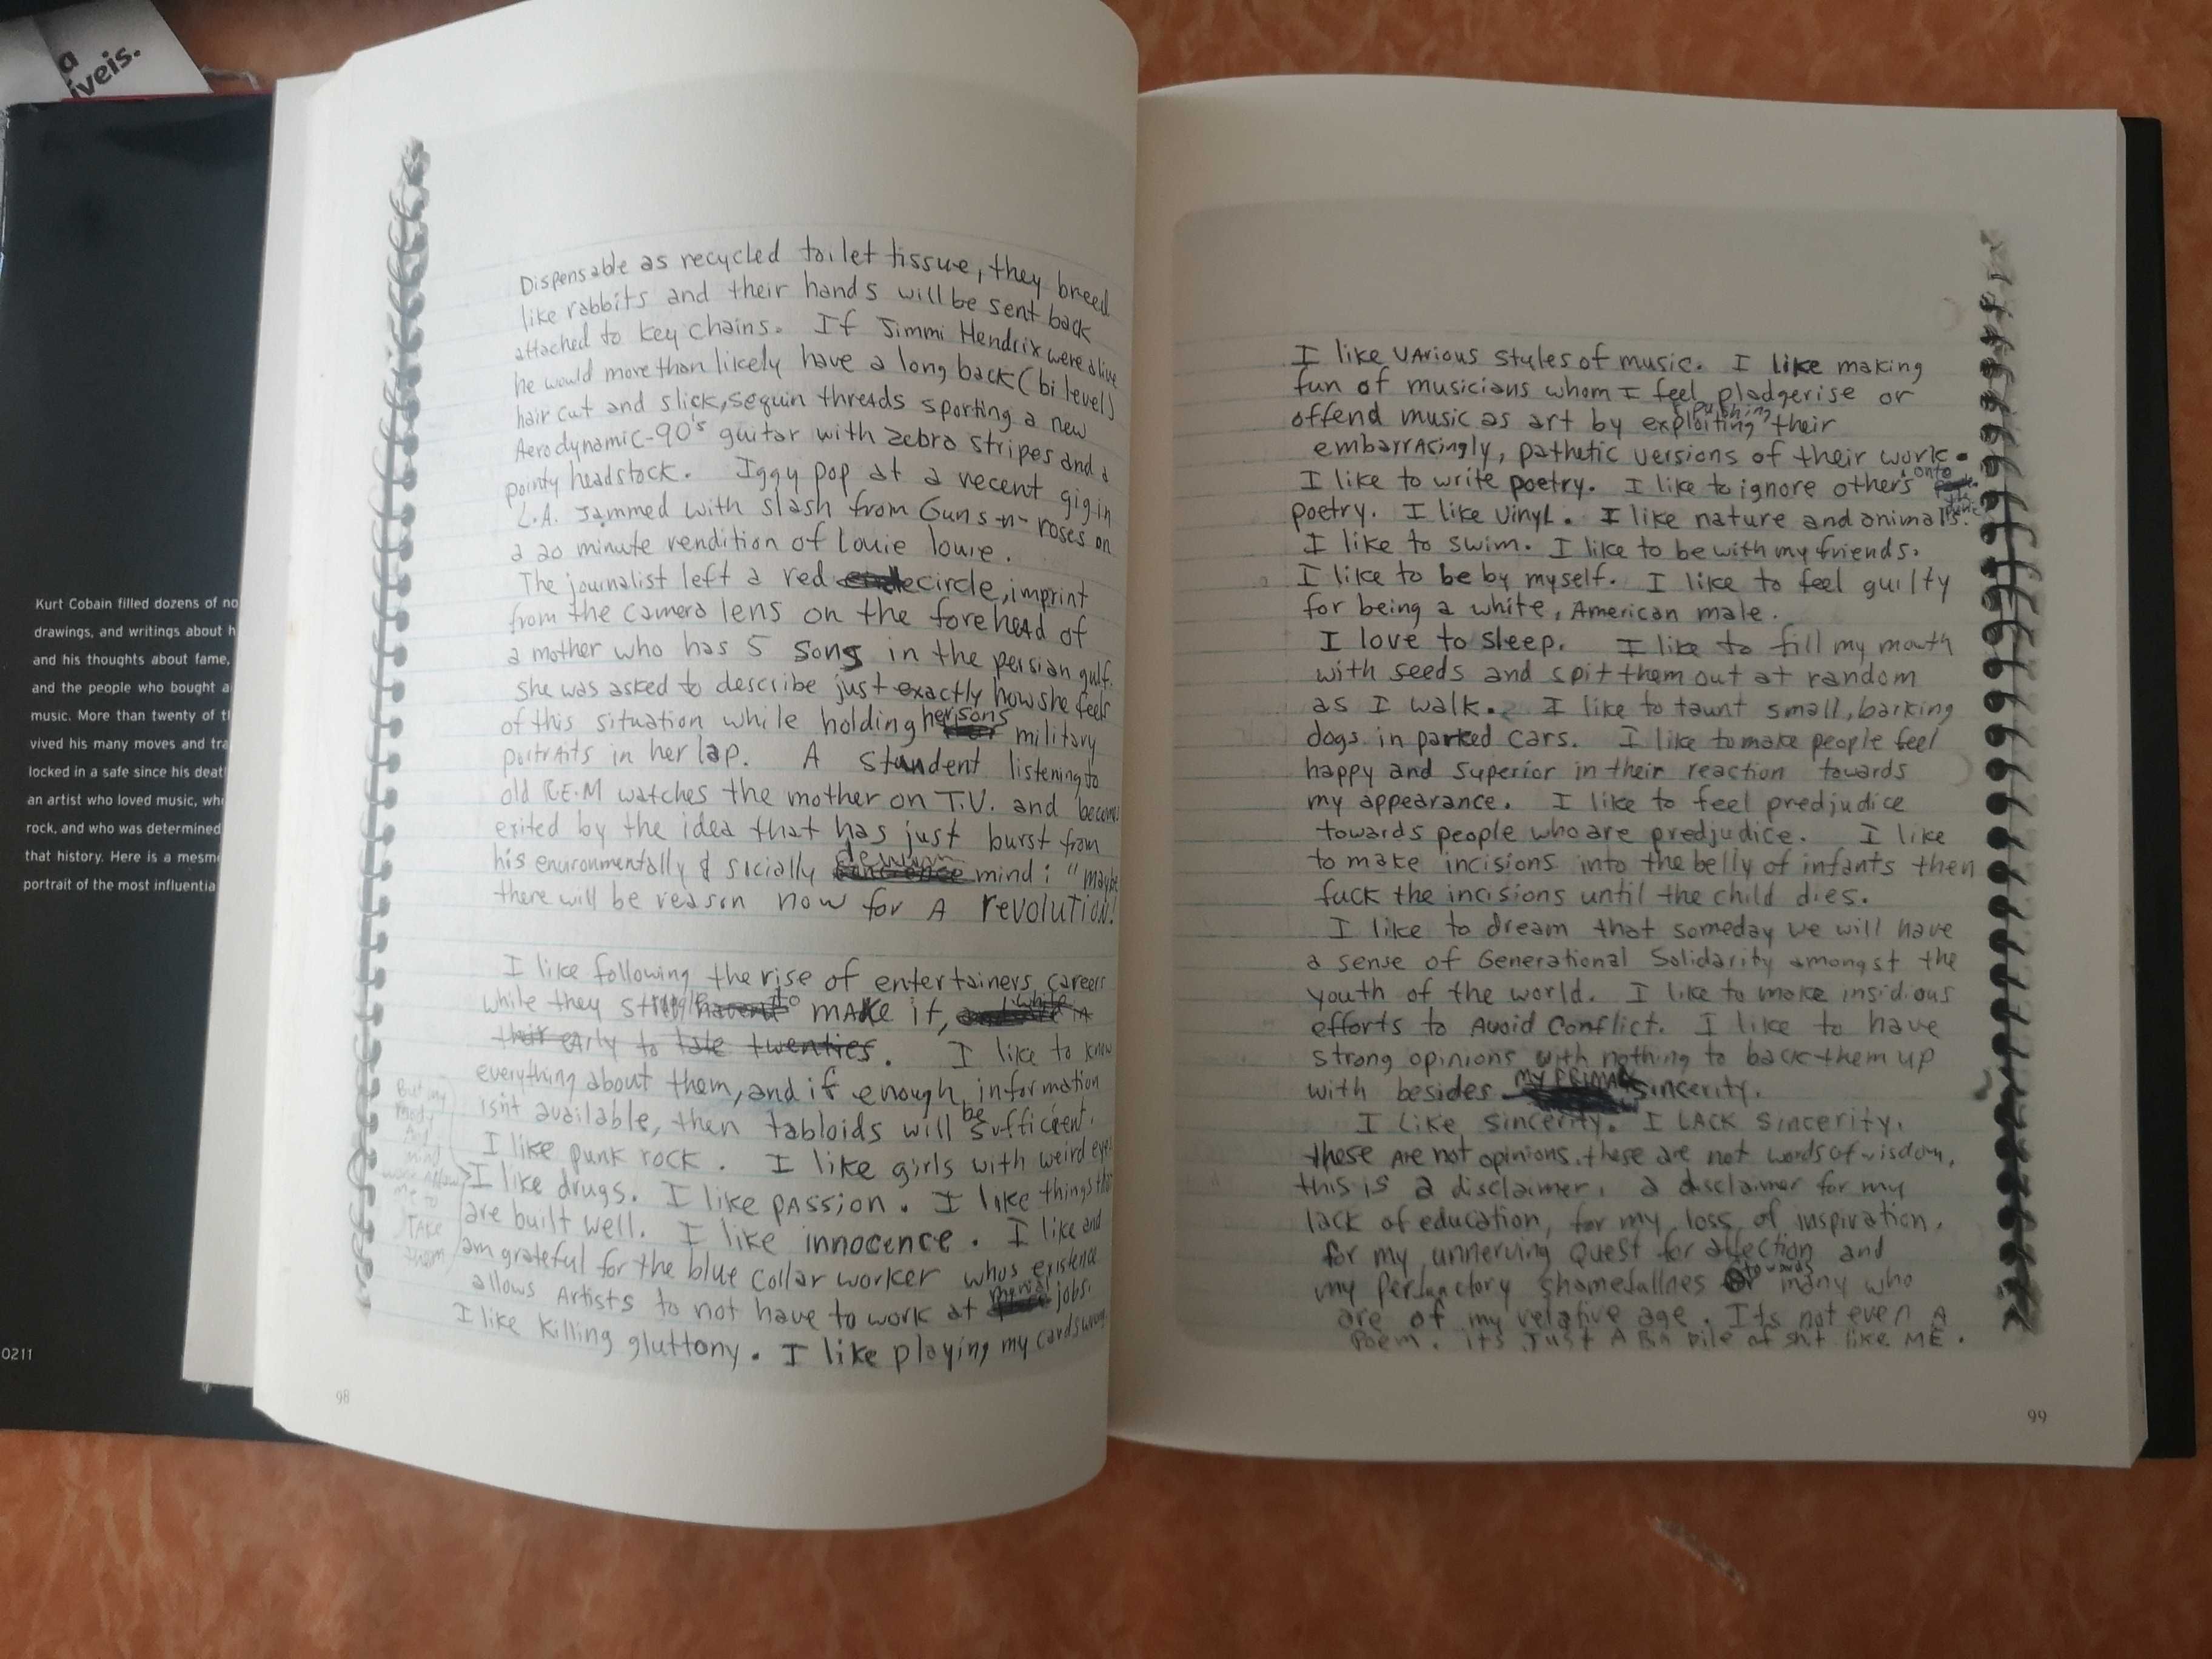 a
íveis.
Kurt Cobain filled dozens of no
drawings, and writings about h
and his thoughts about fame,
and the people who bought a
music. More than twenty of t
vived his many moves and tra
locked in a safe since his deat
an artist who loved music, wh
rock, and who was determined
that history. Here is a mesm
portrait of the most influentia
0211
Dispensable as recycled toilet tissue, they breed
like rabbits and their hands will be sent back
attached to key chains. If Jimmi Hendrix were alive
he would more than likely have a long back (bi level)
hair cut and slick, sequin threads sporting a new
Aerodynamic-90's guitar with zebra stripes and a
pointy headstock. Iggy pop at a recent gig in
L.A. Jammed with slash from Guns-n-roses on
a 20 minute rendition of Louie louie.
The journalist left a red circle, imprint
from the camera lens on the forehead of
a mother who has 5 sons in the persian gulf.
she was asked to describe just exactly how she feels
of this situation while holding her sons military
portraits in her lap. A student listening to
old R.E.M watches the mother on T.V. and becomes
exited by the idea that has just burst from
his environmentally & socially mind: "maybe
there will be reason now for A revolution!
I like following the rise of entertainers careers
while they struggle to make it, while in
their early to late twenties. I like to know
everything about them, and if enough information
isnt available, then tabloids will be sufficient.
I like punk rock. I like girls with weird eyes
I like drugs. I like passion. I like things that
are built well. I like innocence. I like and
am grateful for the blue collar worker whos existence
allows Artists to not have to work at menial jobs.
I like killing gluttony. I like playing my cards wrong
But my
Body
And
mind
wont Allow
me to
TAKE
them
98
I like various styles of music. I like making
fun of musicians whom I feel pladgerise or
offend music as art by exploiting their
pushing
embarrasingly, pathetic versions of their work.
I like to write poetry. I like to ignore others
onto
poetry. I like vinyl. I like nature and animals.
I like to swim. I like to be with my friends.
I like to be by myself. I like to feel guilty
for being a white, American male.
I love to sleep. I like to fill my mouth
with seeds and spit them out at random
as I walk. I like to taunt small, barking
dogs in parked cars. I like to make people feel
happy and superior in their reaction towards
my appearance. I like to feel predjudice
towards people who are predjudice. I like
to make incisions into the belly of infants then
fuck the incisions until the child dies.
I like to dream that someday we will have
a sense of Generational Solidarity amongst the
youth of the world. I like to make insidious
efforts to Avoid Conflict. I like to have
strong opinions with nothing to back them up
with besides my primal sincerity.
I Like sincerity. I LACK sincerity.
these are not opinions. these are not words of wisdom,
this is a disclaimer, a disclaimer for my
lack of education, for my loss of inspiration,
for my unnerving quest for affection and
my perfunctory shamefullnes towards many who
are of my relative age. Its not even A
Poem. its Just A Big pile of shit like ME.
99